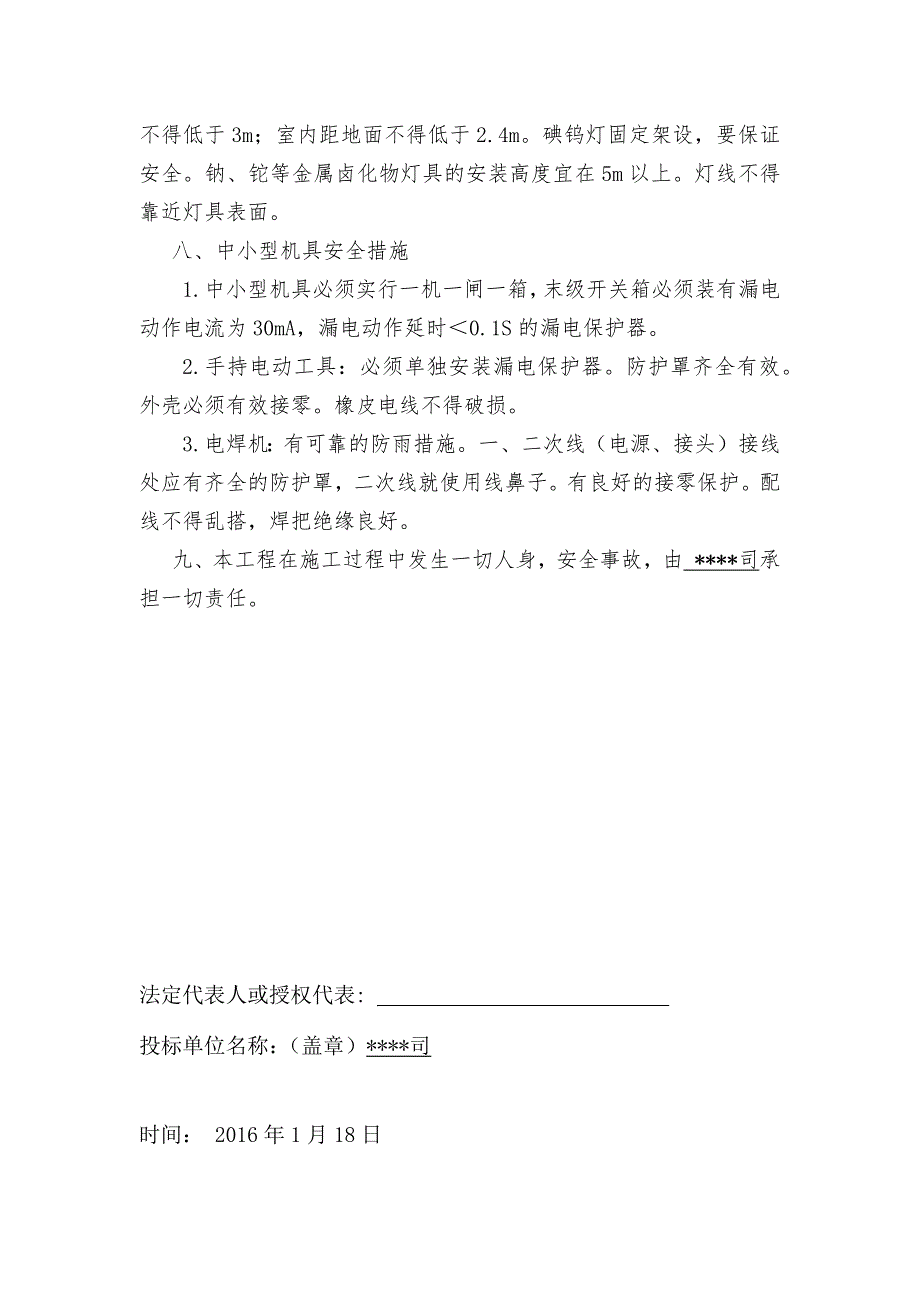 不得低于3m；室内距地面不得低于2.4m。碘钨灯固定架设，要保证
安全。钠、铊等金属卤化物灯具的安装高度宜在5m以上。灯线不得
靠近灯具表面。
八、中小型机具安全措施
1.中小型机具必须实行一机一闸一箱，末级开关箱必须装有漏电
动作电流为30mA，漏电动作延时＜0.1S的漏电保护器。
2.手持电动工具：必须单独安装漏电保护器。防护罩齐全有效。
外壳必须有效接零。橡皮电线不得破损。
3.电焊机：有可靠的防雨措施。一、二次线（电源、接头）接线
处应有齐全的防护罩，二次线就使用线鼻子。有良好的接零保护。配
线不得乱搭，焊把绝缘良好。
九、本工程在施工过程中发生一切人身，安全事故，由 ****司承
担一切责任。
法定代表人或授权代表：
投标单位名称：（盖章）****司
时间： 2016年1月18日